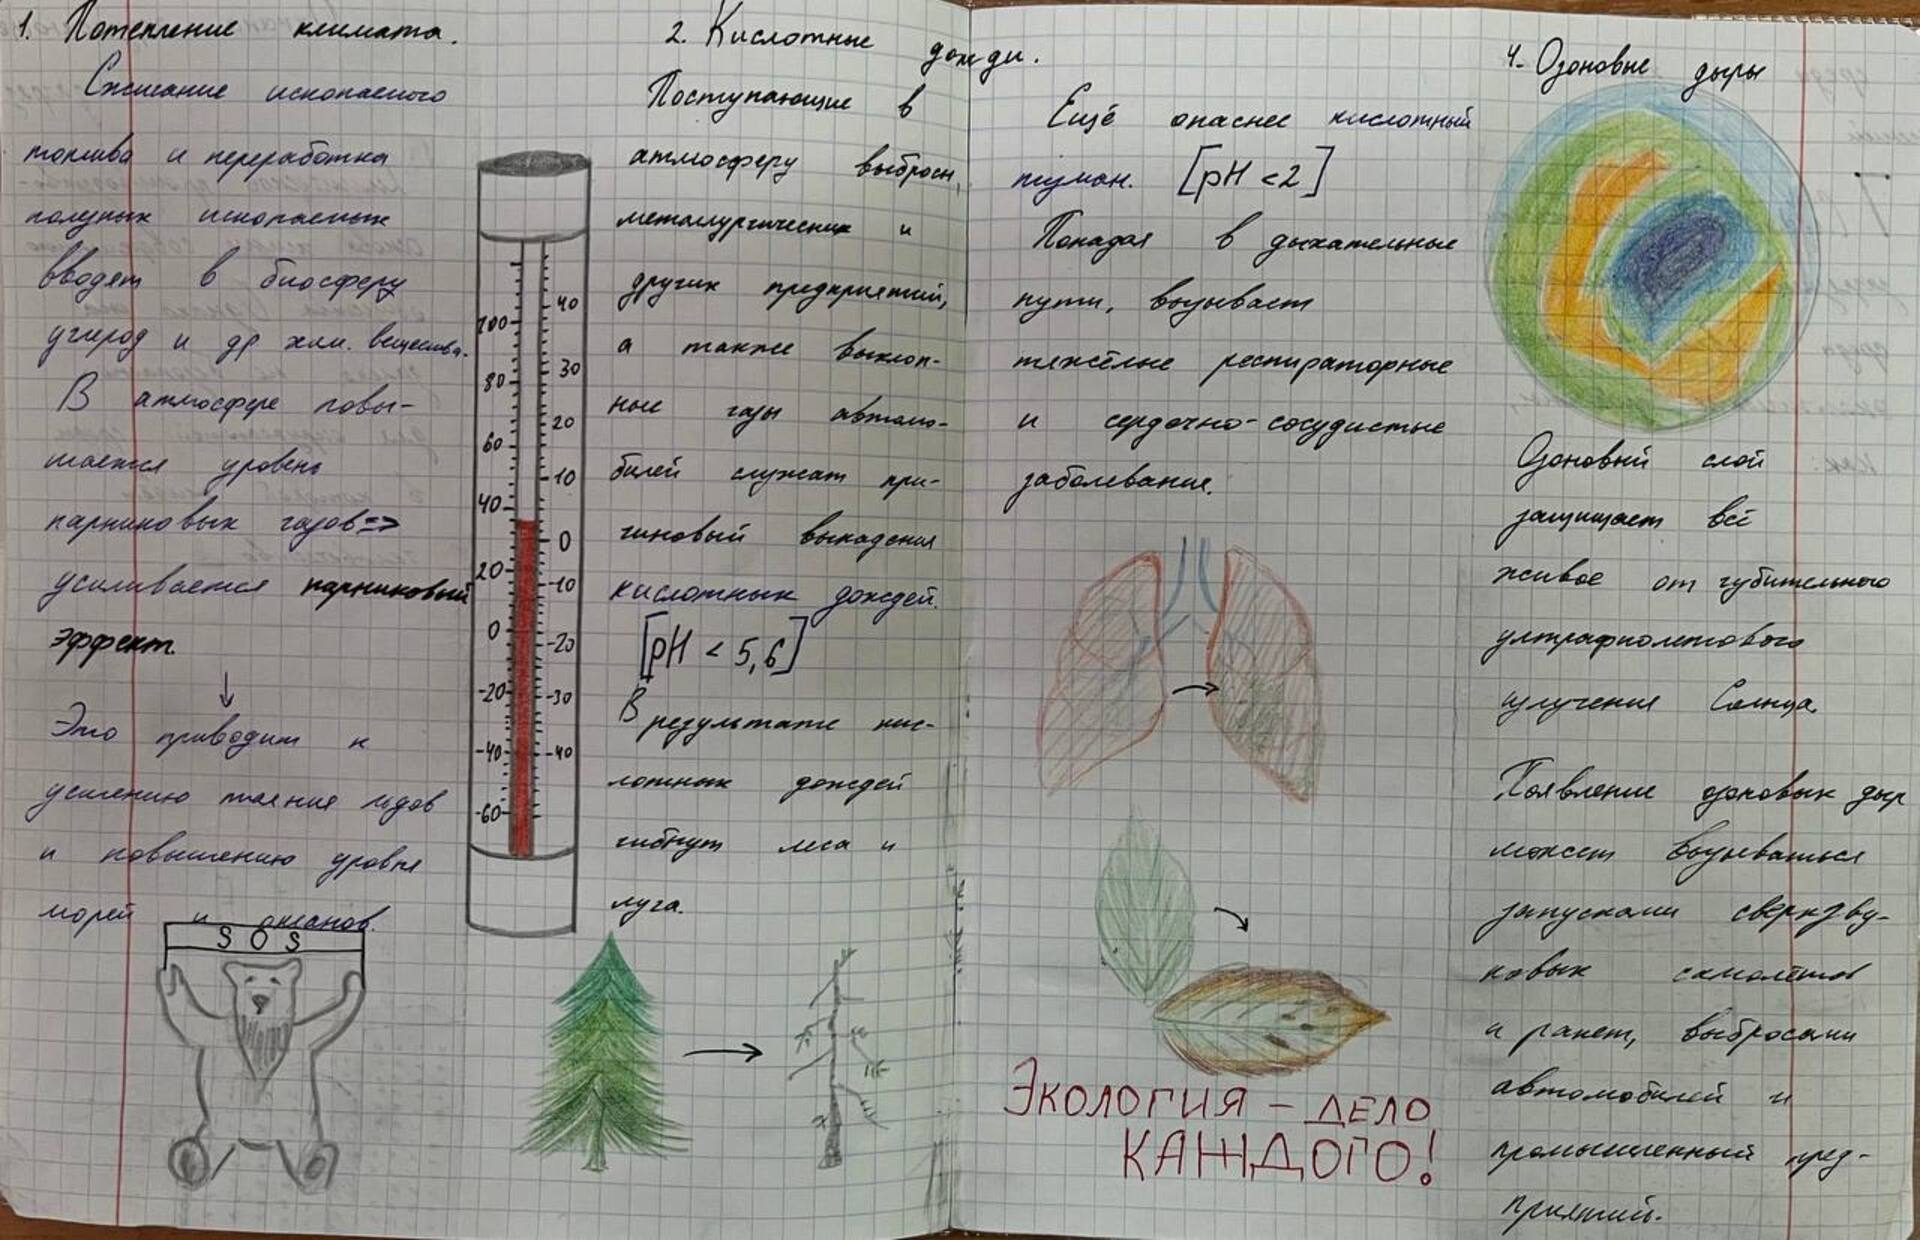 1. Потепление климата.
Сжигание ископаемого
топлива и переработка
полезных ископаемых
вводят в биосферу
углерод и др хим. вещества.
В атмосфере повы-
шается уровень
парниковых газов=>
усиливается парниковый
эффект.
↓
Это приводит к
усилению таяния льдов
и повышению уровня
морей и океанов.
SOS
100
80
60
40
20
0
-20
-40
-60
40
30
20
10
0
-10
-20
-30
-40
2. Кислотные дожди.
Поступающие в
атмосферу выбросы,
металургических и
других предприятий,
а также выхлоп-
ные газы автомо-
билей служат при-
чиновый выпадения
кислотных дождей.
[pH < 5,6]
В результате кис-
лотных дождей
гибнут леса и
луга.
Ещё опаснее кислотный
туман. [pH <2]
Попадая в дыхательные
пути, вызывает
тяжёлые респираторные
и сердечно-сосудистые
заболевание.
ЭКОЛОГИЯ – ДЕЛО
КАЖДОГО!
4. Озоновые дыры
Озоновый слой
защищает всё
живое от губительного
ултрафиолетового
излучения Солнца.
Появление озоновых дыр
может вызываться
запусками сверхзву-
ковых самолётов
и ракет, выбросами
автомобилей и
промышленный пред-
приятий.